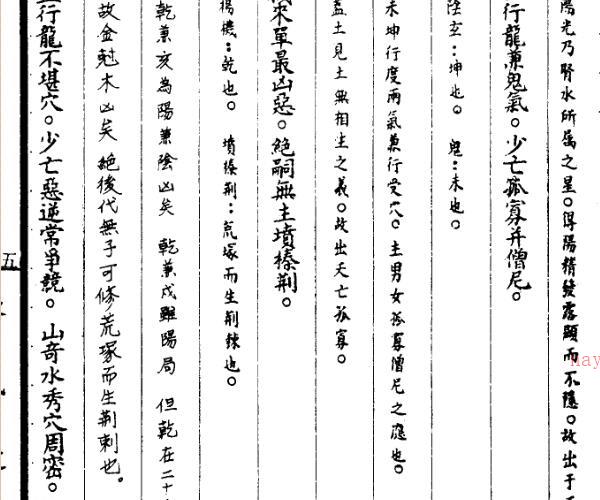 陽光乃腎水所屬之星。得陽精發露顯而不隱。故出于
行龍兼鬼氣。少亡孤寡并僧尼。
陰玄：坤也。 鬼：未也。
未坤行度兩氣兼行受穴。主男女孤寡僧尼之應也。
蓋土見土無相生之義。故出夭亡孤寡。
來單最凶惡。絕嗣無主墳榛荆。
楊機：乾也。 墳榛荆：荒塚而生荆棘也。
乾兼亥為陽兼陰凶矣 乾兼戍雖陽局 但乾在二十
故金尅木凶矣 絕後代無子可修荒塚而生荆刺也。
行龍不堪穴。少亡惡逆常爭競。 山奇水秀穴周密。
五
nay